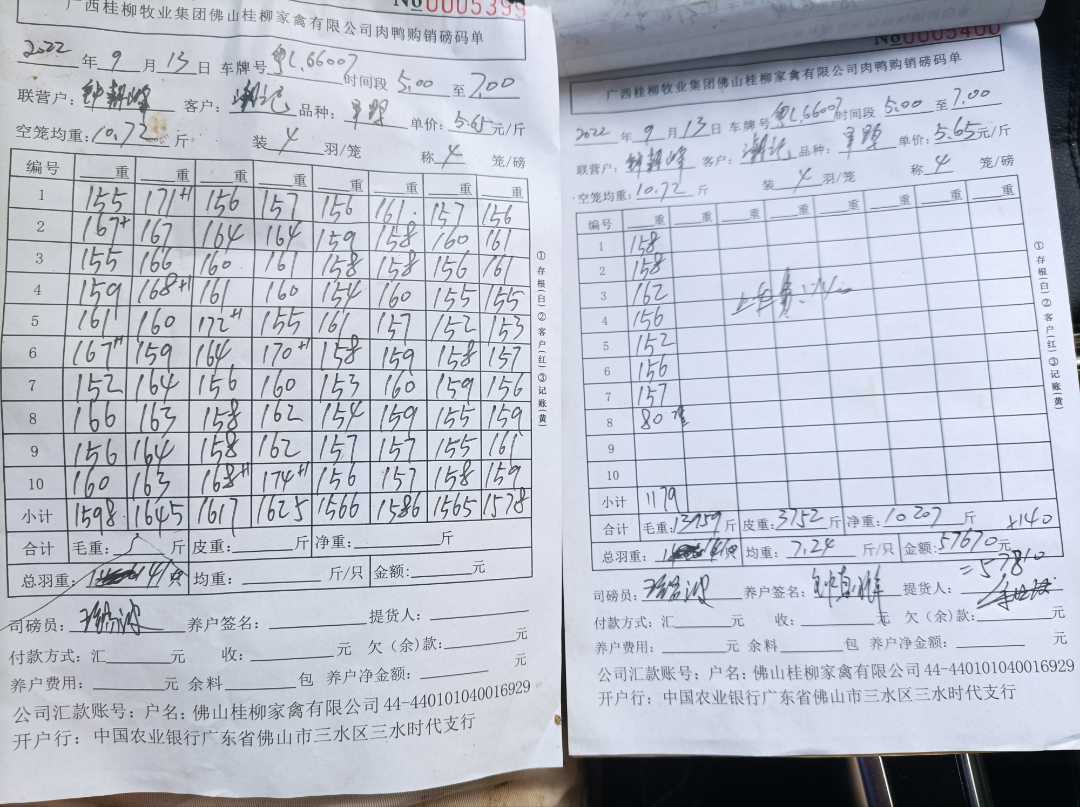 No0005399
广西桂柳牧业集团佛山桂柳家禽有限公司肉鸭购销磅码单
2022年9月13日 车牌号粤L66007 时间段5.00至7.00
联营户: 客户: 品种: 单价:5.65元/斤
空笼均重:10.72斤 装4羽/笼 称4笼/磅
编号 重 重 重 重 重 重 重 重
1 155 171+1 156 157 156 161 157 156
2 167+ 167 164 164 159 158 160 161
3 155 166 160 161 158 158 156 161
4 159 168+1 161 160 154 160 155 155
5 161 160 172+1 155 161 157 152 153
6 167+1 159 164 170+1 158 159 158 157
7 152 164 156 160 153 160 159 156
8 166 163 158 162 154 159 155 159
9 156 164 158 162 157 157 155 161
10 160 163 168+1 174+1 156 157 158 159
小计 1598 1645 1617 1625 1566 1586 1565 1578
合计 毛重: 斤 皮重: 斤 净重: 斤
总羽重: 均重: 斤/只 金额: 元
司磅员: 养户签名: 提货人:
付款方式:汇 元 收: 元 欠(余)款: 元
养户费用: 元 余料 包 养户净金额: 元
公司汇款账号:户名:佛山桂柳家禽有限公司44-440101040016929
开户行:中国农业银行广东省佛山市三水区三水时代支行
①存根(白)②客户(红)③记账(黄)
No0005400
广西桂柳牧业集团佛山桂柳家禽有限公司肉鸭购销磅码单
2022年9月13日 车牌号粤L66007 时间段5.00至7.00
联营户: 客户: 品种: 单价:5.65元/斤
空笼均重:10.72斤 装4羽/笼 称4笼/磅
编号 重 重 重 重 重 重 重 重
1 158
2 158
3 162
4 156
5 152
6 156
7 157
8 80
9
10
小计 1179
合计 毛重:13959斤 皮重:3752斤 净重:10207斤 +140
总羽重: 均重:7.24斤/只 金额:57670元
=57810
司磅员: 养户签名: 提货人:
付款方式:汇 元 收: 元 欠(余)款: 元
养户费用: 元 余料 包 养户净金额: 元
公司汇款账号:户名:佛山桂柳家禽有限公司44-440101040016929
开户行:中国农业银行广东省佛山市三水区三水时代支行
①存根(白)②客户(红)③记账(黄)